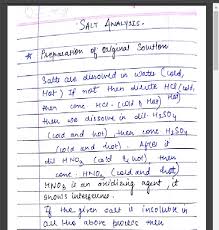 SALT ANALYSIS.
* Preparation of Original Solution
Salts are dissolved in water (cold,
Hot) If not then dilute HCl (cold, Hot)
then conc. HCl. (cold & Hot)
then we dissolve in dil. H2SO4
(cold and hot), then conc. H2SO4
(cold and hot). After it
dil HNO3 (cold & hot) then
conc. HNO3 (cold and hot)
HNO3 is an oxidizing agent, it
shows interference.
If the given salt is insoluble in
all the above process then